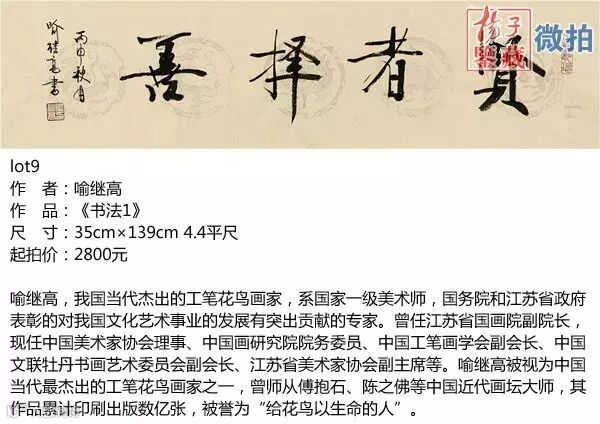 賢者擇善
丙申秋月
喻继高書
扬子
鉴藏
微拍
lot9
作 者：喻继高
作 品：《书法1》
尺 寸：35cm×139cm 4.4平尺
起拍价：2800元
喻继高，我国当代杰出的工笔花鸟画家，系国家一级美术师，国务院和江苏省政府
表彰的对我国文化艺术事业的发展有突出贡献的专家。曾任江苏省国画院副院长，
现任中国美术家协会理事、中国画研究院院务委员、中国工笔画学会副会长、中国
文联牡丹书画艺术委员会副会长、江苏省美术家协会副主席等。喻继高被视为中国
当代最杰出的工笔花鸟画家之一，曾师从傅抱石、陈之佛等中国近代画坛大师，其
作品累计印刷出版数亿张，被誉为“给花鸟以生命的人”。